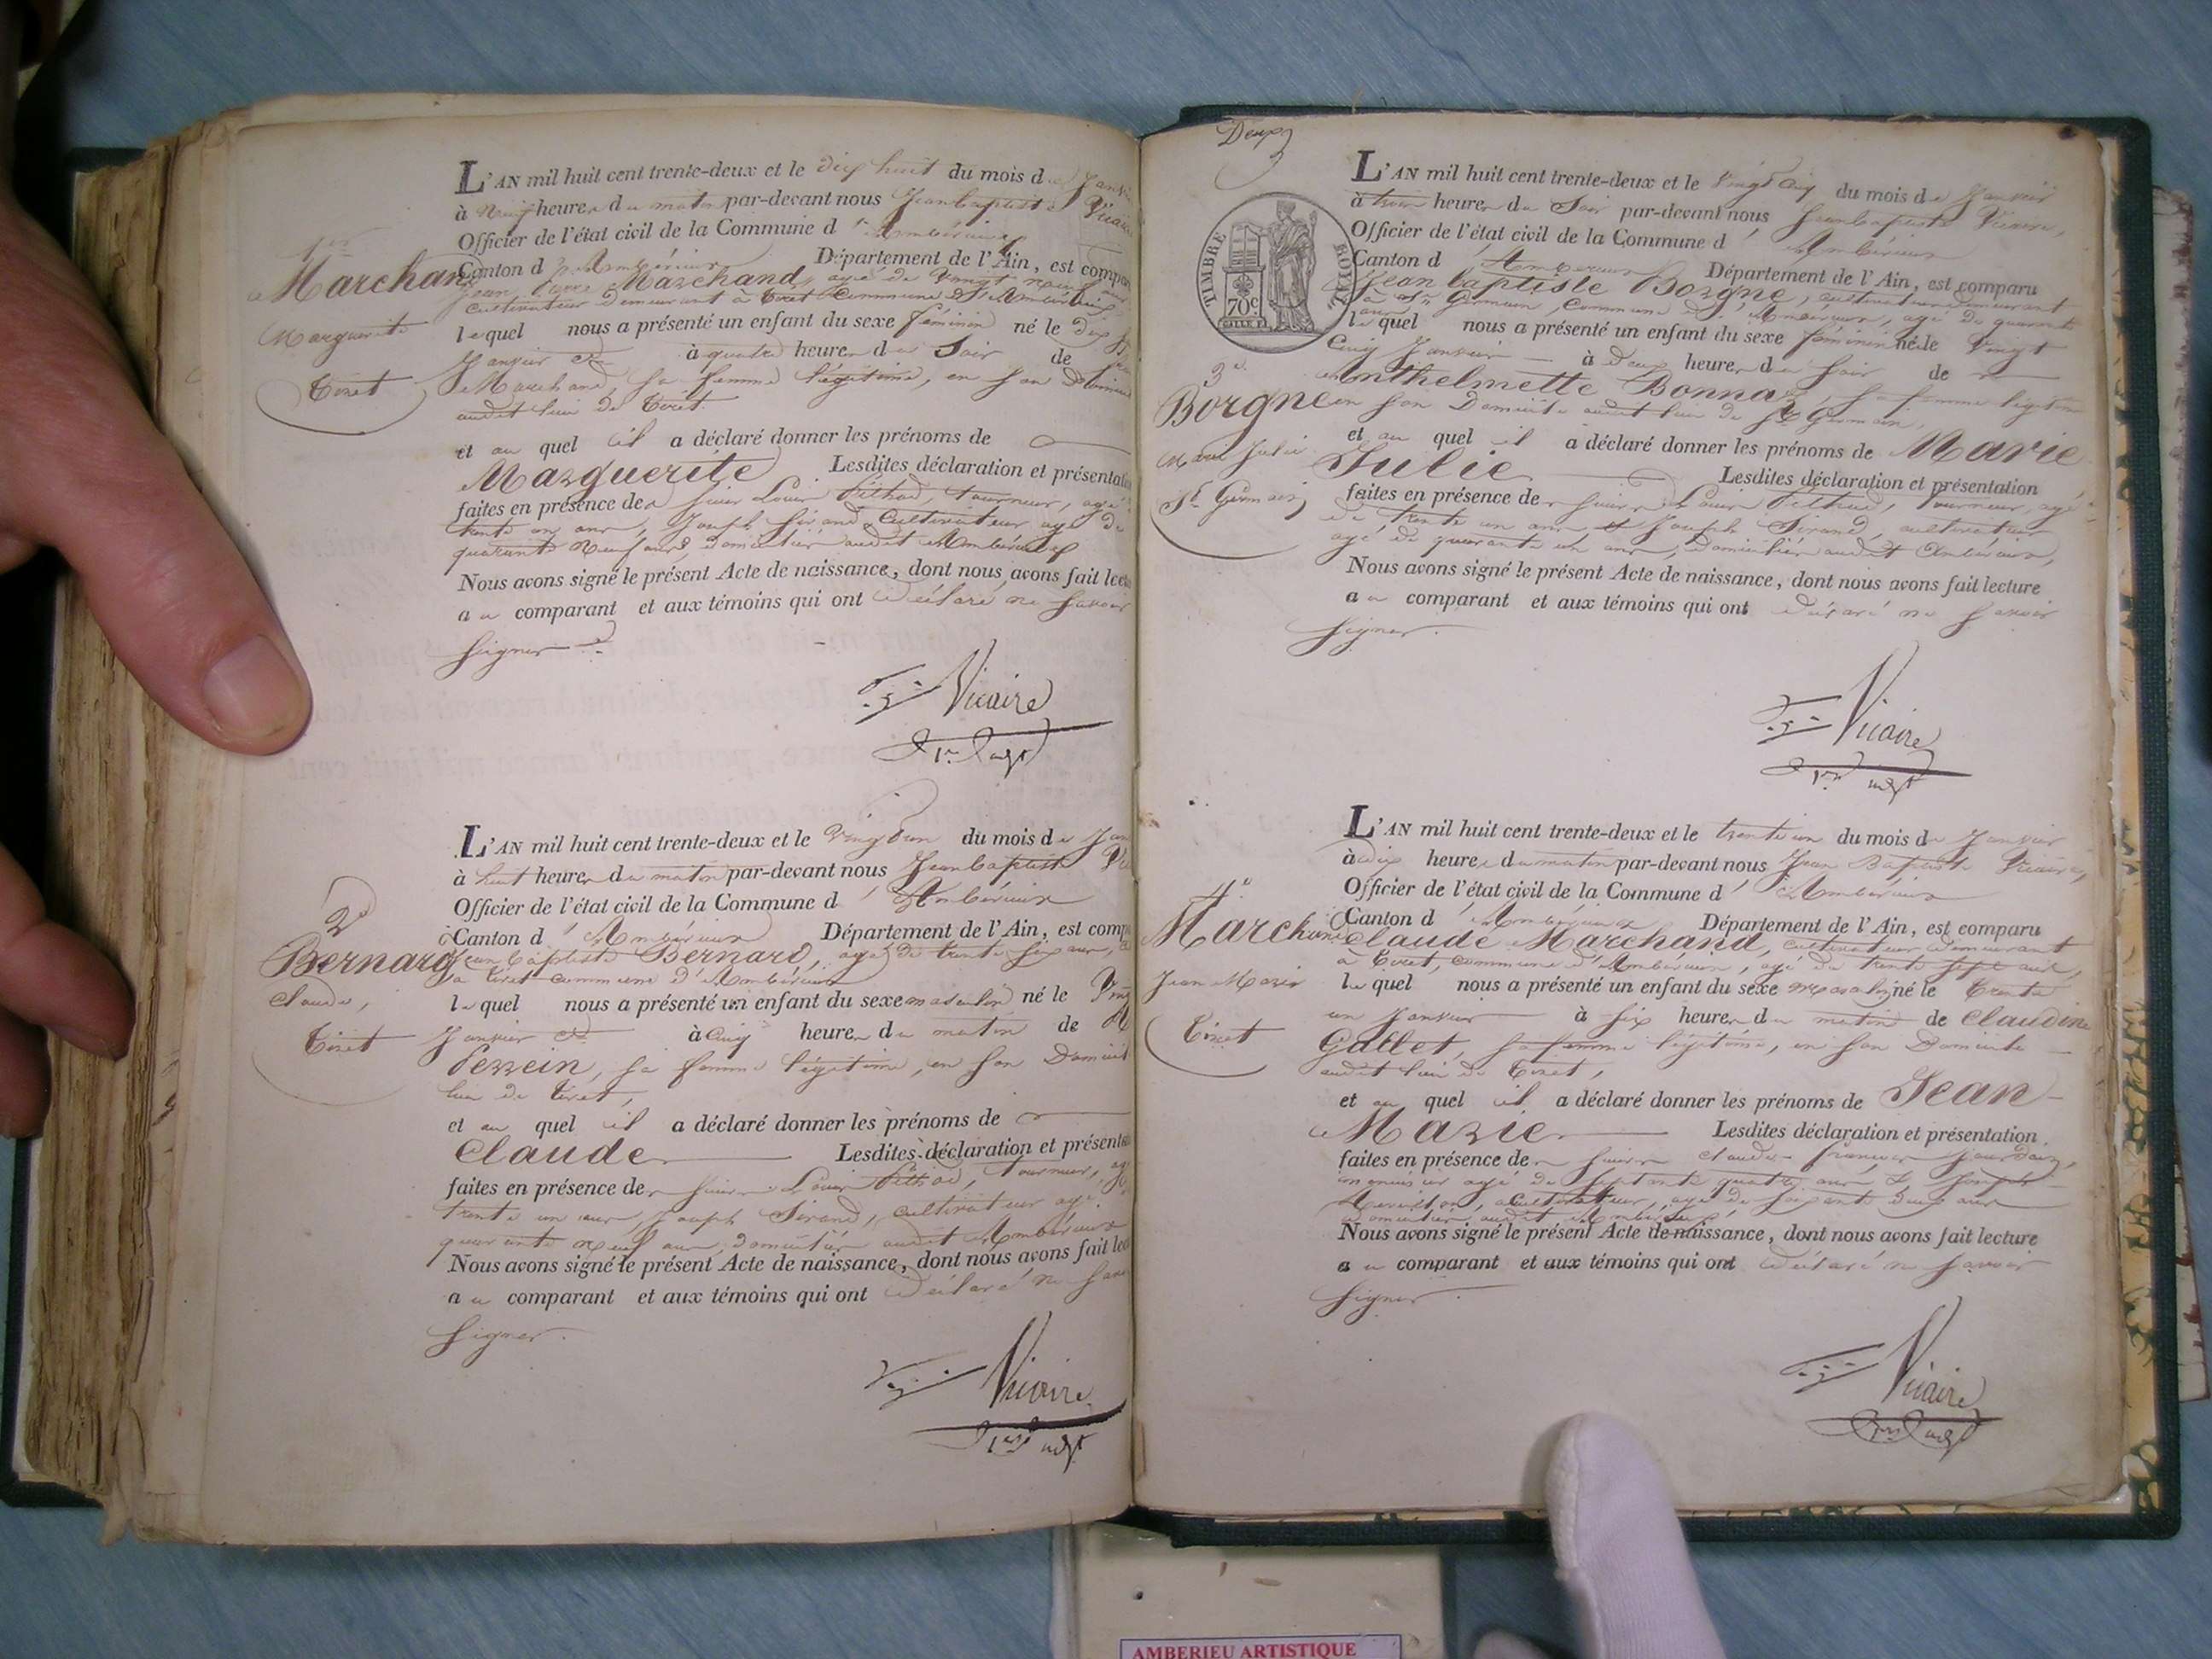 1er
Marchand
Marguerite
Tiret
L'AN mil huit cent trente-deux et le dix huit du mois de
à neuf heures du matin par-devant nous Jean baptiste Vicaire
Officier de l'état civil de la Commune d'Ambérieux
Canton d'Ambérieux Département de l'Ain, est
Marchand, agé de vingt neuf ans
cultivateur demeurant à Tiret Commune d'Ambérieux
lequel nous a présenté un enfant du sexe féminin né le dix
Janvier à quatre heures du Soir de
Marchand, sa femme légitime, en son
audit lieu de Tiret.
et au quel il a déclaré donner les prénoms de
Marguerite Lesdites déclaration et
faites en présence des sieurs Louis tourneur, agé
trente un ans, Joseph Sirand, Cultivateur agé de
quarante neuf ans, domiciliés audit Ambérieux
Nous avons signé le présent Acte de naissance, dont nous avons fait
au comparant et aux témoins qui ont déclaré ne savoir
signer
Vicaire
2e
Bernard
Claude,
Tiret
L'AN mil huit cent trente-deux et le vingt un du mois de
à huit heures du matin par-devant nous Jean baptiste
Officier de l'état civil de la Commune d'Ambérieux
Canton d'Ambérieux Département de l'Ain, est
Jean baptiste Bernard, agé de trente six ans,
à Tiret commune d'Ambérieux
lequel nous a présenté un enfant du sexe masculin né le
Janvier à cinq heures du matin de
Perrein, sa femme légitime, en son
lieu de Tiret,
et au quel il a déclaré donner les prénoms de
Claude Lesdites déclaration et
faites en présence des sieurs Louis tourneur,
trente un ans, Joseph Sirand, cultivateur agé
quarante neuf ans, domiciliés audit Ambérieux
Nous avons signé le présent Acte de naissance, dont nous avons fait
au comparant et aux témoins qui ont déclaré ne
signer.
Vicaire
Deux
TIMBRE ROYAL
70c
3e
Borgne
Marie Julie
St Germain
L'AN mil huit cent trente-deux et le vingt cinq du mois de Janvier
à trois heures du Soir par-devant nous Jean baptiste Vicaire,
Officier de l'état civil de la Commune d'Ambérieux
Canton d'Ambérieux Département de l'Ain, est comparu
Jean baptiste Borgne, cultivateur demeurant
à St Germain, commune d'Ambérieux, agé de quarante
ans lequel nous a présenté un enfant du sexe féminin né le vingt
cinq Janvier à deux heures du soir de
Anthelmette Bonnaz, sa femme légitime
en son Domicile audit lieu de St Germain,
et au quel il a déclaré donner les prénoms de Marie
Julie Lesdites déclaration et présentation
faites en présence des sieurs Louis tourneur, agé
de trente un ans, et Joseph Sirand, cultivateur
agé de quarante un ans, domiciliés audit Ambérieux,
Nous avons signé le présent Acte de naissance, dont nous avons fait lecture
au comparant et aux témoins qui ont déclaré ne savoir
signer.
Vicaire
4e
Marchand
Jean Marie
Tiret
L'AN mil huit cent trente-deux et le trente un du mois de Janvier
à dix heures du matin par-devant nous Jean Baptiste Vicaire,
Officier de l'état civil de la Commune d'Ambérieux
Canton d'Ambérieux Département de l'Ain, est comparu
Claude Marchand, cultivateur demeurant
à Tiret, commune d'Ambérieux, agé de trente sept ans,
lequel nous a présenté un enfant du sexe masculin né le trente
un Janvier à six heures du matin de Claudine
Gallet, sa femme légitime, en son Domicile
audit lieu de Tiret,
et au quel il a déclaré donner les prénoms de Jean
Marie Lesdites déclaration et présentation
faites en présence des sieurs Claude françois
agé de septante quatre ans & Joseph
cultivateur, agé de soixante deux ans
domiciliés audit Ambérieux
Nous avons signé le présent Acte de naissance, dont nous avons fait lecture
au comparant et aux témoins qui ont déclaré ne savoir
signer.
Vicaire
AMBERIEU ARTISTIQUE